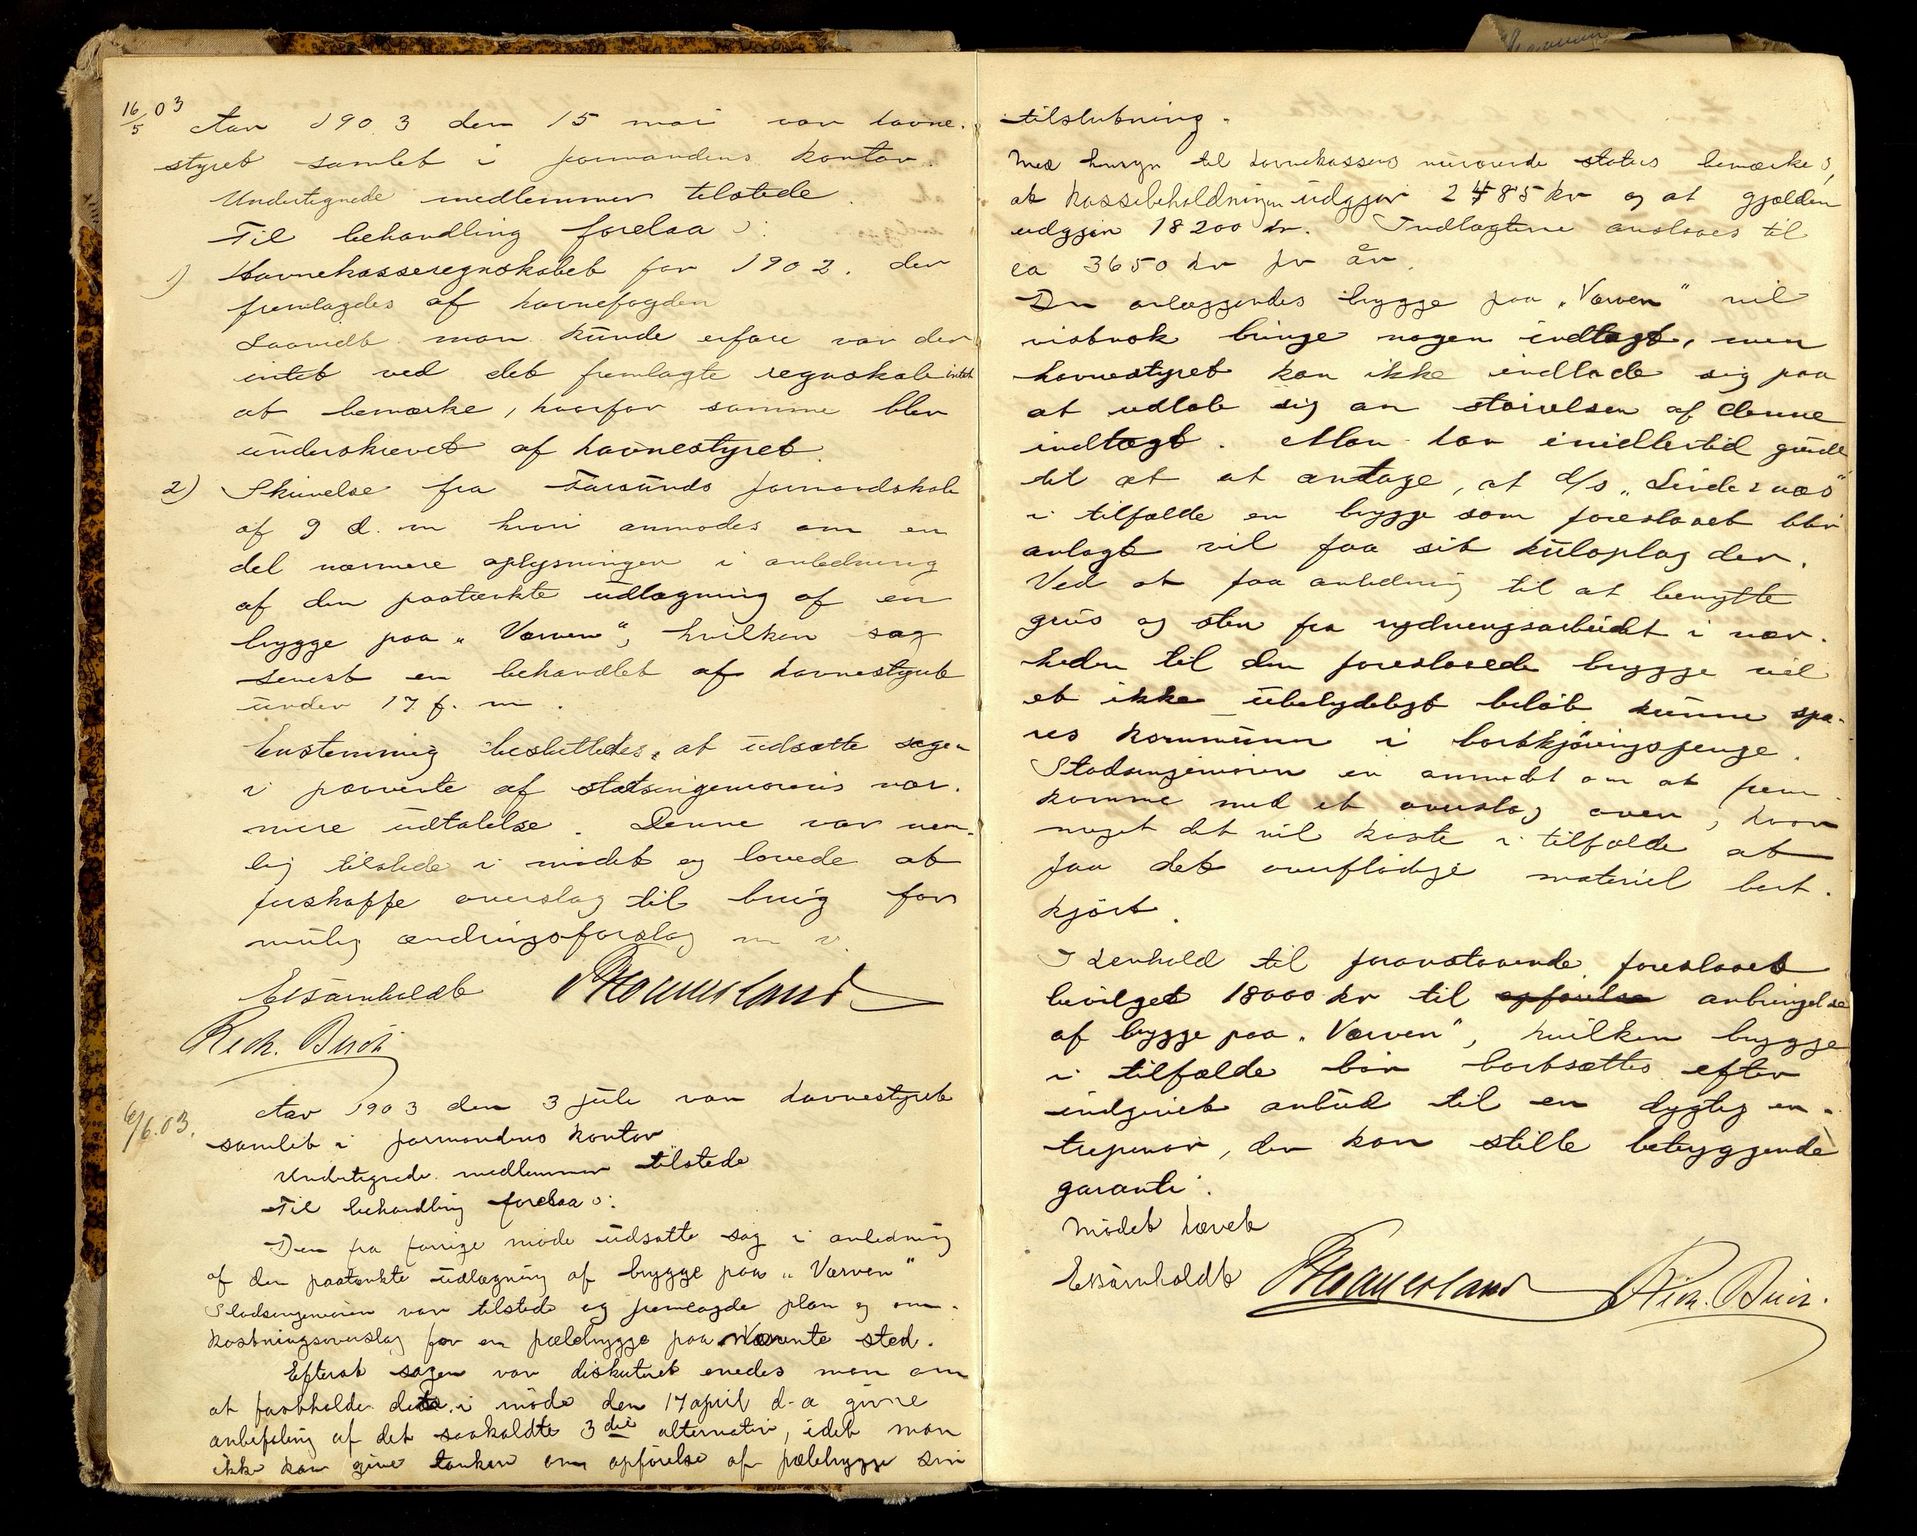 16/5 03
Aar 1903 den 15 mai var havne-
styret samlet i formandens kontor.
Undertegnede medlemmer tilstede.
Til behandling forelaa:
1) Havnekasseregnskabet for 1902. der
fremlagdes af havnefogden
Saavidt man kunde erfare var der
intet ved det fremlagte regnskab intet
at bemærke, hvorfor samme blev
underskrevet af havnestyret.
2) Skrivelse fra Farsunds formandskab
af 9 d. m hvori anmodes om en
del nærmere oplysninger i anledning
af den paatænkte udlægning af en
brygge paa "Værven", hvilken sag
senest er behandlet af havnestyret
under 17 f. m.
Enstemmig besluttedes, at udsætte sagen
i paavente af stadsingeniørens nær-
mere udtalelse. Denne var nem-
lig tilstede i mødet og lovede at
forskaffe overslag til brug for
mulig ændringsforslag m v.
E Barnholdt
Rich. Buch
6/6.03.
Aar 1903 den 3 juli var havnestyret
samlet i formandens kontor
Undertegnede medlemmer tilstede
Til behandling forelaa:
Den fra forrige møde udsatte sag i anledning
af den paatænkte udlægning af brygge paa "Værven"
Stadsingeniøren var tilstede og fremlagde plan og om-
kostningsoverslag for en pælebrygge paa nævnte sted.
Efterat sagen var diskuteret enedes man om
at fastholde den i møde den 17 april d. a givne
anbefaling af det saakaldte 3die alternativ, idet man
ikke kan give tanken om opførelse af pælebrygge sin
tilslutning.
Med hensyn til havnekassens nuværende status bemærkes,
at kassebeholdningen udgjør 2485 kr og at gjælden
udgjør 18200 kr. Indtægterne anslaaes til
ca 3650 kr pr år.
Den anlæggendes brygge paa "Værven" vil
vistnok bringe nogen indtægt, men
havnestyret kan ikke indlade sig paa
at udtale sig om størrelsen af denne
indtægt. Man har imidlertid grund
til at at antage, at d/s "Lindesnæs"
i tilfælde en brygge som foreslaaet blir
anlagt vil faa sit kuloplag der.
Ved at faa anledning til at benytte
grus og sten fra rydningsarbeidet i nær-
heden til den foreslaaede brygge vil
et ikke ubetydeligt beløb kunne spa-
res kommunen i bortkjøringspenge.
Stadsingeniøren er anmodet om at frem-
komme med et overslag over, hvor
meget det vil koste i tilfælde at
faa det overflødige materiel bort-
kjørt.
I Henhold til foranstaaende foreslaaes
bevilget 18000 kr til opførelse anbringelse
af brygge paa "Værven", hvilken brygge
i tilfælde bør bortsættes efter
indgivet anbud til en dygtig en-
treprenør, der kan stille betryggende
garanti.
Mødet hævet
E Barnholdt Rich. Buch.